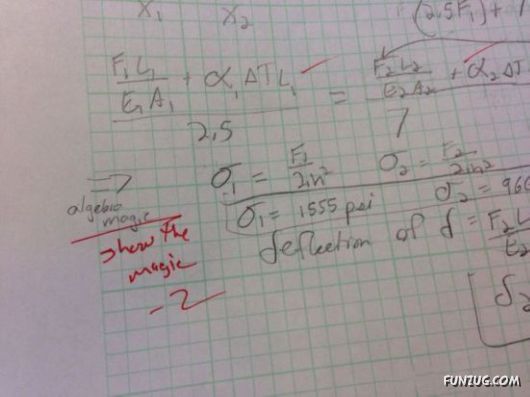 X₁ X₂ (2.5F₁) +
F₁L₁/E₁A₁ + α₁ΔTL₁ = F₂L₂/E₂A₂ + α₂ΔT
2.5 7
⇒ σ₁ = F₁/2in² σ₂ = F₂/2in²
algebra
magic
σ₁ = 1555 psi σ₂ = 966
show the
magic
-2
deflection of d = F₂L
E₂
δ₂
FUNZUG.COM